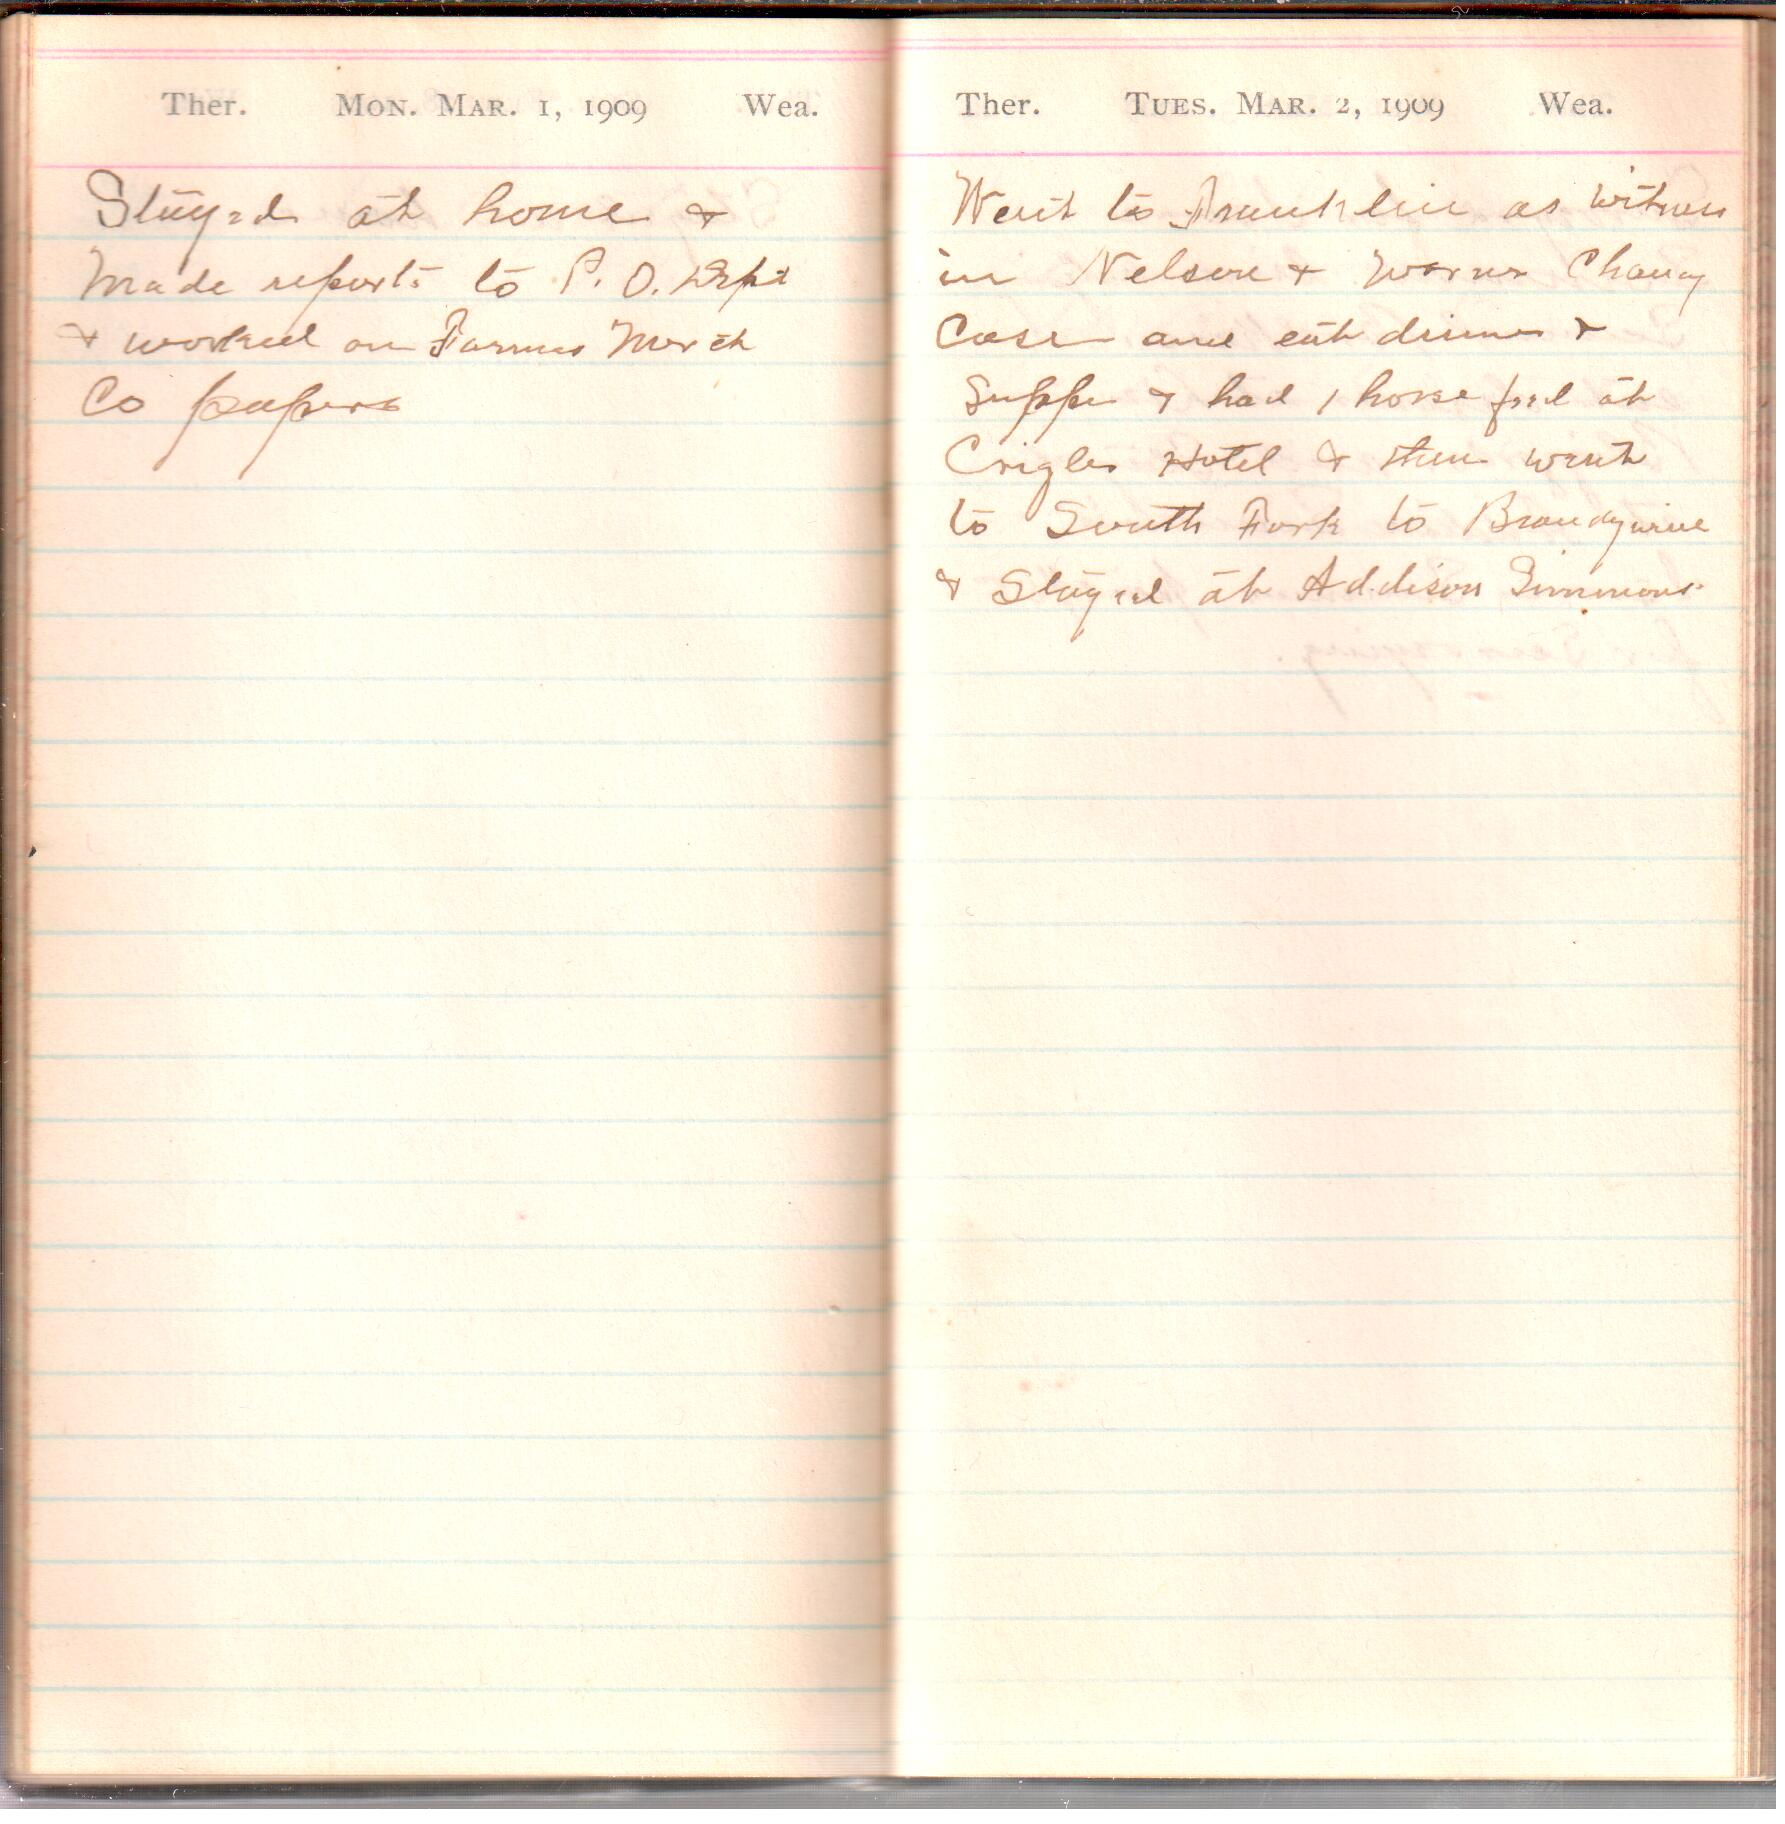 Ther. Mon. Mar. 1, 1909 Wea.
Stayed at home &
Made reports to P. O. Dept
& worked on Farmers Merch
Co papers
Ther. Tues. Mar. 2, 1909 Wea.
Went to Franklin as witness
in Nelson & Warner
Case and eat dinner &
Supper & had 1 horse feed at
Crigler Hotel & then went
to South Fork to Brandywine
& Stayed at Addison Simmons